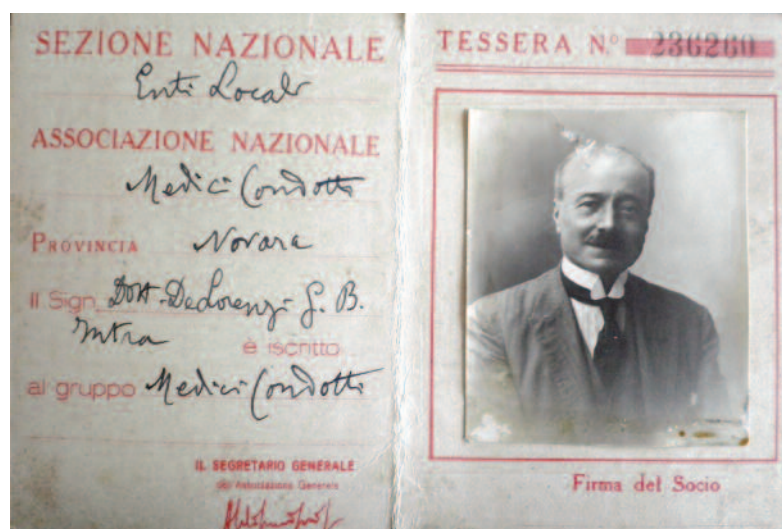 SEZIONE NAZIONALE
Enti Locali
ASSOCIAZIONE NAZIONALE
Medici Condotti
PROVINCIA Novara
Il Sign. Dott. DeLorenzi G. B.
Intra è iscritto
al gruppo Medici Condotti
IL SEGRETARIO GENERALE
TESSERA N.° 236260
Firma del Socio